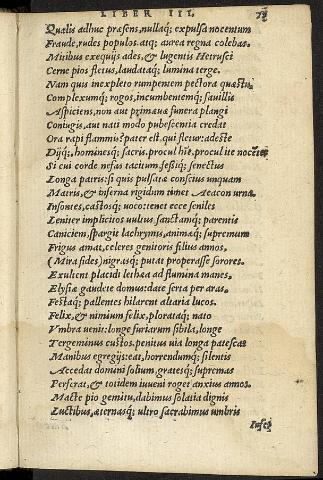 LIBER III.
Qualis adhuc præsens, nullaq; expulsa nocentum
Fraude, rudes populos, atq; aurea regna colebas.
Mitibus exequijs ades, & lugentis Hetrusci
Cerne pios fletus, laudataq; lumina terge.
Nam quis inexpleto rumpentem pectora quæstu
Complexumq; rogos, incumbentemq; fauillis
Aspiciens, non aut primæuæ funera plangi
Coniugis, aut nati modo pubescentia credat
Ora rapi flammis? pater est, qui fletur: adeste
Dijq;, hominesq; sacris, procul hinc, procul ite nocẽtes
Si cui corde nefas tacitum, fessiq; senectus
Longa patris: si quis pulsatæ conscius unquam
Matris, & inferna rigidum timet Aeacon urna.
Insontes, castosq; uoco: tenet ecce seniles
Leniter implicitos uultus sanctamq; parentis
Caniciem, spargit lachrymis, animæq; supremum
Frigus amat, celeres genitoris filius annos,
(Mira fides) nigrasq; putat properasse sorores.
Exultent placidi lethæa ad flumina manes.
Elysiæ gaudete domus: date serta per aras.
Festaq; pallentes hilarent altaria lucos.
Felix, & nimium felix, plorataq; nato
Vmbra uenis: longe furiarum sibila, longe
Tergeminus custos, penitus uia longa patescat
Manibus egregijs: eat, horrendumq; silentis
Accedat domini solium, gratesq; supremas
Perferat, & totidem iuueni roget anxius annos.
Macte pio gemitu, dabimus solatia dignis
Luctibus, æternasq; ultro sacrabimus umbris